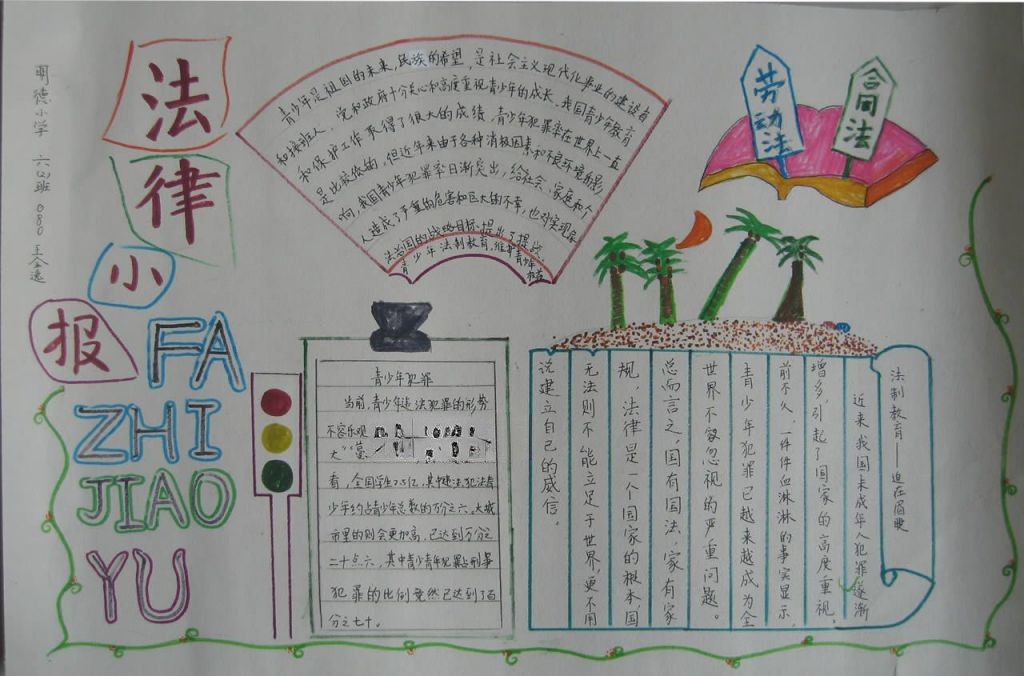 明德小学 六(2)班 080 王全逸
法
律
小
报
FA
ZHI
JIAO
YU
青少年是祖国的未来,民族的希望,是社会主义现代化事业的建设者
和接班人。党和政府十分关心和高度重视青少年的成长,我国青少年教育
和保护工作取得了很大的成绩,青少年犯罪率在世界上一直
是比较低的,但近年来由于各种消极因素和不良环境的影
响,我国青少年犯罪率日渐突出,给社会、家庭和个
人造成了严重的危害和巨大的不幸,也对实现
法治国的战略目标提出了挑战。
青少年法制教育,维护青少年
权益
劳动法
合同法
青少年犯罪
当前,青少年违法犯罪的形势
不容乐观
大"
看,全国学生2.5亿,其中违法犯法青
少年约占青少年总数的万分之六,大城
市里的则会更加高,已达到万分之
二十点六,其中青少青年犯罪占刑事
犯罪的比例竟然已达到了百
分之七十。
法制教育——迫在眉睫
近来我国未成年人犯罪逐渐
增多,引起了国家的高度重视,
前不久,一件件血淋淋的事实显示,
青少年犯罪已越来越成为全
世界不容忽视的严重问题。
总而言之,国有国法,家有家
规,法律是一个国家的根本,国
无法则不能立足于世界,更不用
说建立自己的威信。